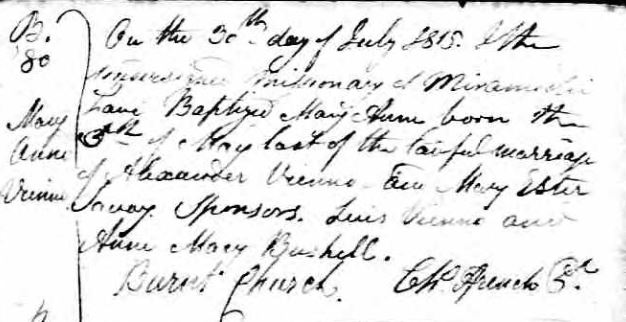 B. 80
Mary Anne Vienno
On the 30th day of July 1815. I the
undersigned missionary of Miramichi
have Baptized Mary Anne born the
8th of May last of the lawful marriage
of Alexander Vienno and Mary Ester
Savoy. Sponsors. Luis Vienno and
Anne Mary Bushell.
Burnt Church. Chs. Ffrench Pt.